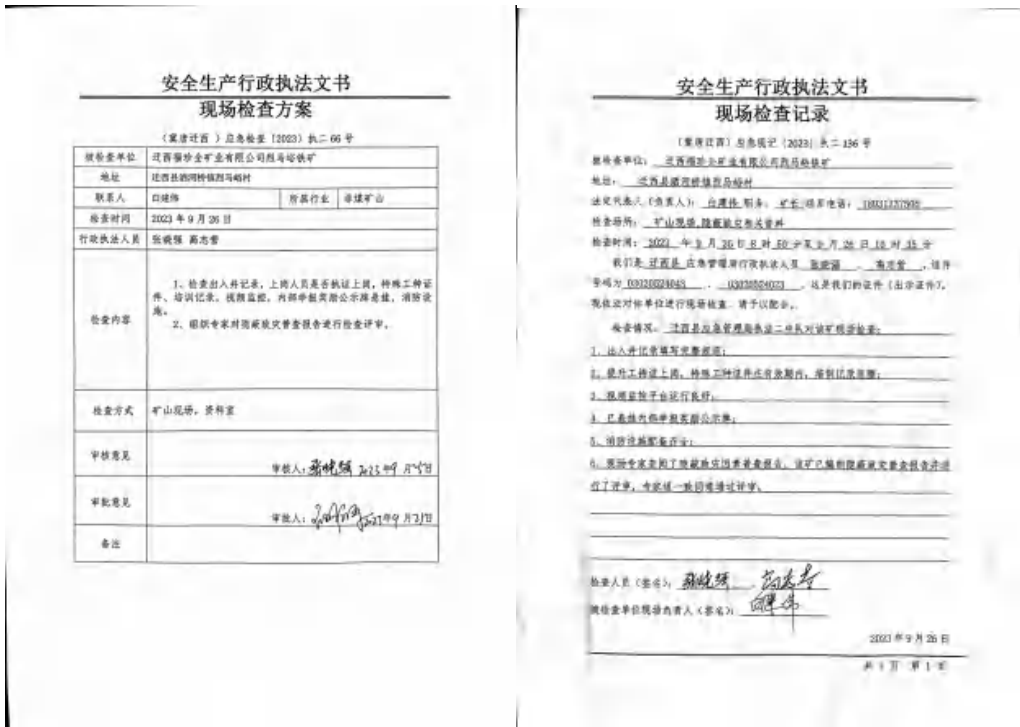 安全生产行政执法文书
现场检查方案
（冀唐迁西）应急检查〔2023〕执二66号
被检查单位 迁西福珍全矿业有限公司烈马峪铁矿
地址 迁西县洒河桥镇烈马峪村
联系人 白建伟 所属行业 非煤矿山
检查时间 2023年9月26日
行政执法人员 张晓强 高志雪
检查内容
1、检查出入井记录，上岗人员是否执证上岗，特殊工种证
件、培训记录，视频监控，内部举报奖励公示牌悬挂，消防设
施。
2、组织专家对隐蔽致灾普查报告进行检查评审。
检查方式 矿山现场，资料室
审核意见
审核人：张晓强 2023年9月25日
审批意见
审批人： 2023年9月25日
备注
安全生产行政执法文书
现场检查记录
（冀唐迁西）应急现记〔2023〕执二136号
被检查单位：迁西福珍全矿业有限公司烈马峪铁矿
地址：迁西县洒河桥镇烈马峪村
法定代表人（负责人）：白建伟 职务：矿长 联系电话：
检查场所：矿山现场,隐蔽致灾相关资料
检查时间：2023年9月26日8时50分至9月26日10时35分
我们是迁西县应急管理局行政执法人员张晓强、高志雪，证件
号码为、，这是我们的证件（出示证件）。
现依法对你单位进行现场检查，请予以配合。
检查情况：迁西县应急管理局执法二中队对该矿现场检查：
1、出入井记录填写完整规范；
2、提升工持证上岗，特殊工种证件在有效期内，培训记录完整；
3、视频监控平台运行良好；
4、已悬挂内部举报奖励公示牌；
5、消防设施配备齐全；
6、现场专家查阅了隐蔽致灾因素普查报告，该矿已编制隐蔽致灾普查报告并进
行了评审，专家组一致同意通过评审。
检查人员（签名）：张晓强、高志雪
被检查单位现场负责人（签名）：白建伟
2023年9月26日
共1页 第1页